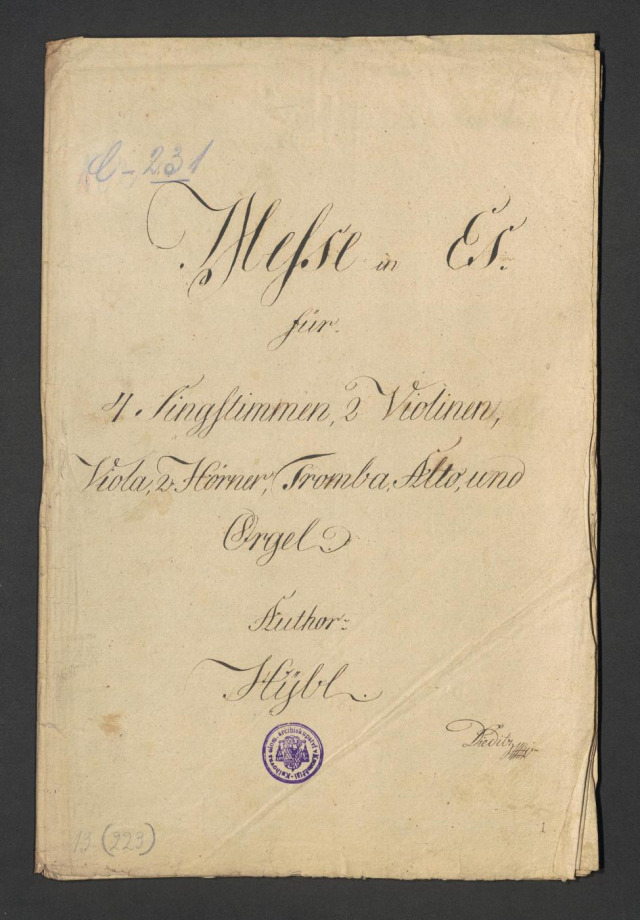 C-231
Messe in Es.
für.
4 Singstimmen, 2 Violinen,
Viola, 2 Hörner, Tromba, Alto, und
Orgel
Author:
Hÿbl.
19 (223)
1